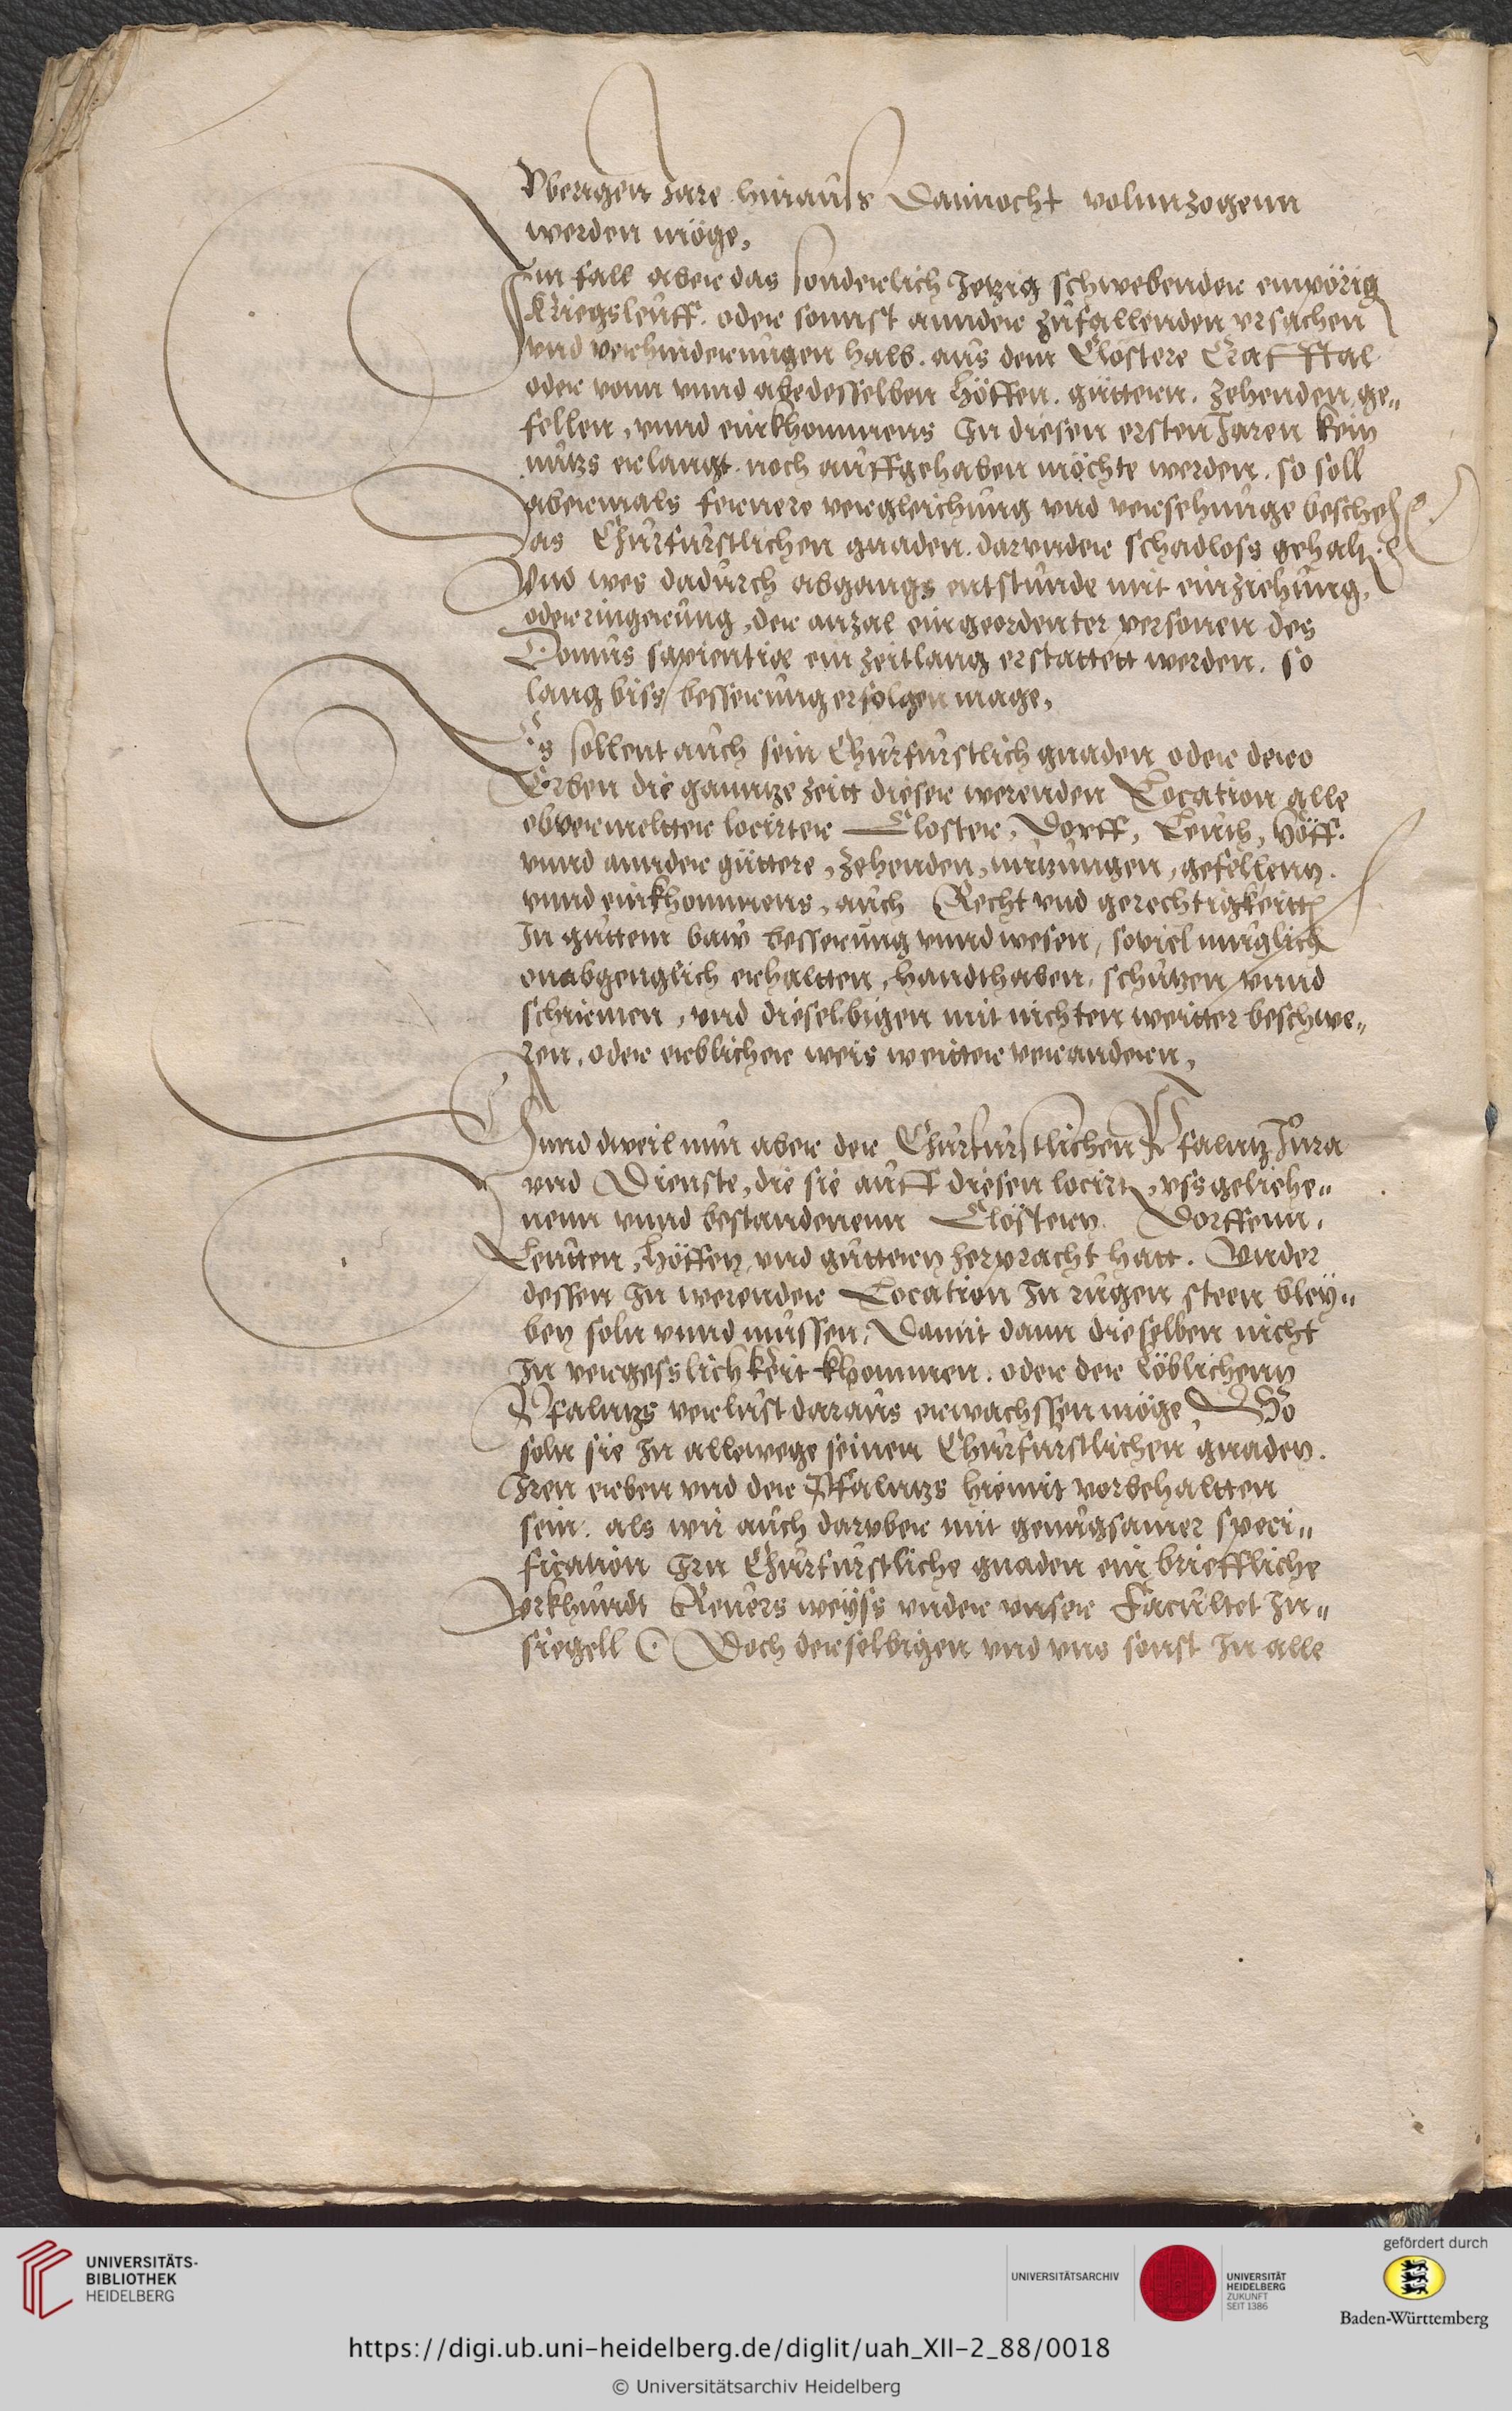 Vberigen Jare hinauss Dannocht volnnzogenn
werden möge,
Im fall aber das sonderlich Jetzig schwebender empörig
Kriegsleuff. oder sonnst annder zufallenden vrsachen
vnd verhinderungen halb. aus dem Clöstere Craffttal
oder vonn vnnd abe desselben höffen. güttern. zehenden, ge„
fellen, vnnd einkhommens In diesen ersten Jaren kein
nutzs erlangt. noch auffgehaben möchte werden. so soll
abermals fernere vergleichung vnd versehunge beschehe
das Churfurstlichen gnaden. darvnder schadloss gehalt.
Vnd wes dadurch abgangs entstunde mit einziehung,
oder ringerung, der anzal eingeordenter personen des
Domus sapientiæ ein zeitlang erstattett werden. so
lang biss besserung erfolgen mage,
Es sollent auch sein Churfurstlich gnaden oder dero
Erben die ganntze zeitt dieser werenden Location alle
obvermeltter locirter Closter, Dorff, Leuth, Höff.
vnnd annder güttere, zehenden, nutzungen, gefellenn.
vnnd einkhommens, auch Recht vnd gerechtigkeitt
In guttem baw besserung vnnd wesen, soviel muglich
onabgenglich erhaltten, handthaben, schutzen vnnd
schirmen, vnd dieselbigen mit nichten weitter beschwe„
ren, oder erblicher weis weitter veranderen,
Vnnd dweil nun aber der Churfurstlichen Pfalntz Jura
vnd Dienste, die sie auff diesen locirt, vssgeliehe„
nenn vnnd bestandenenn Clöstern. Dorffenn,
Leutten, Höffen, vnd guttern herpracht hatt. Vnder
dessen In werender Location In rugen steen bley„
ben soln vnnd mussen, Damit dann dieselben nicht
In vergesslichkeit khommen. oder der löblichenn
Pfalntzs verlust daraus erwachssen möge, So
soln sie In allewege seinen Churfurstlichen gnaden.
Iren erben vnd der Pfalntzs hiemit vorbehaltten
sein. als wir auch darvber mit genugsamer speci„
fication Irn Churfurstliche gnaden ein brieffliche
Vrkhundt Reuers weyss vnder vnser Facultet In„
siegell (Doch derselbigen vnd vns sonst In alle
UNIVERSITÄTS-
BIBLIOTHEK
HEIDELBERG
UNIVERSITÄTSARCHIV
UNIVERSITÄT
HEIDELBERG
ZUKUNFT
SEIT 1386
gefördert durch
Baden-Württemberg
https://digi.ub.uni-heidelberg.de/diglit/uah_XII-2_88/0018
© Universitätsarchiv Heidelberg